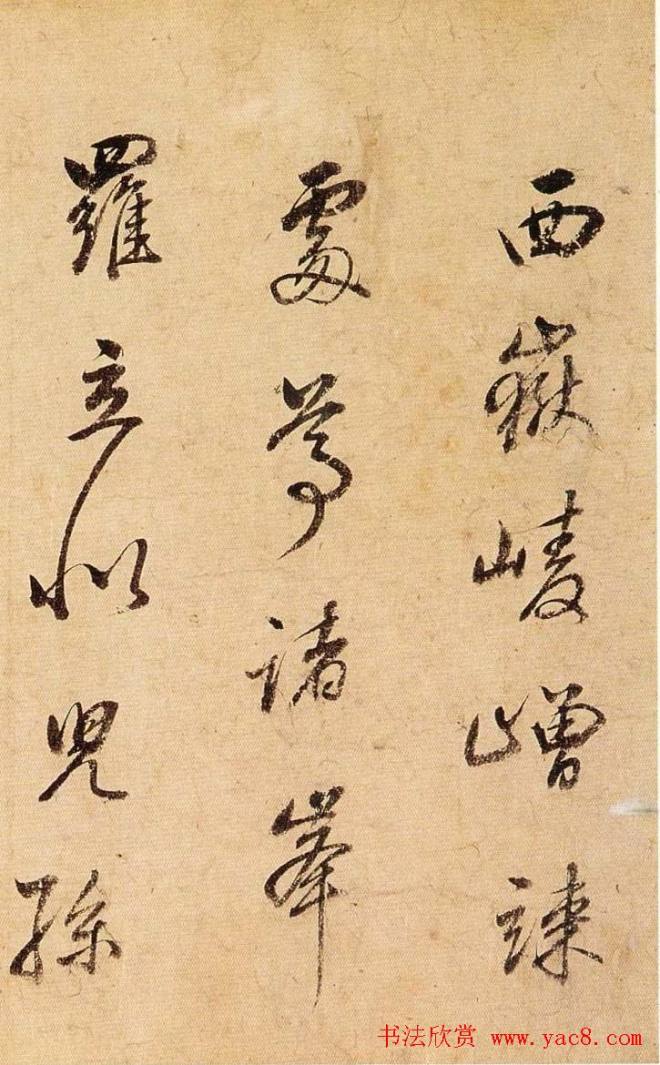 西嶽崚嶒竦
處尊諸峯
羅立似兒孫
书法欣赏 www.yac8.com